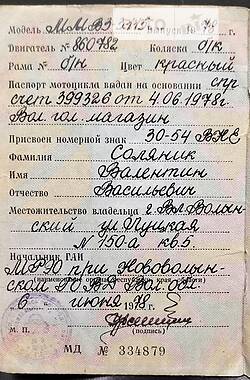 Модель ММВЗ 3.115 Выпуска 19 78 г.
Двигатель № 860782 Коляска б/к
Рама № б/н Цвет красный
Паспорт мотоцикла выдан на основании спр
счет 399326 от 4.06.1978г.
Вол. гол. магазин
Присвоен номерной знак 30-54 ВНЕ
Фамилия Соляник
Имя Валентин
Отчество Васильевич
Местожительство владельца г. Вл. Волын-
ский ул Луцкая
N 150-а кв 5
Начальник ГАИ
МРЭО при Нововолын-
ском ГОВД Вол. обл.
6 июня 1978 г.
(подпись)
М. П.
МД № 334879